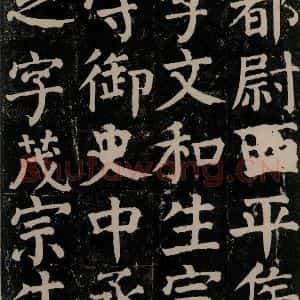 都尉西平侯
字文和生
御史中丞
之字茂宗生
shufawang.CN